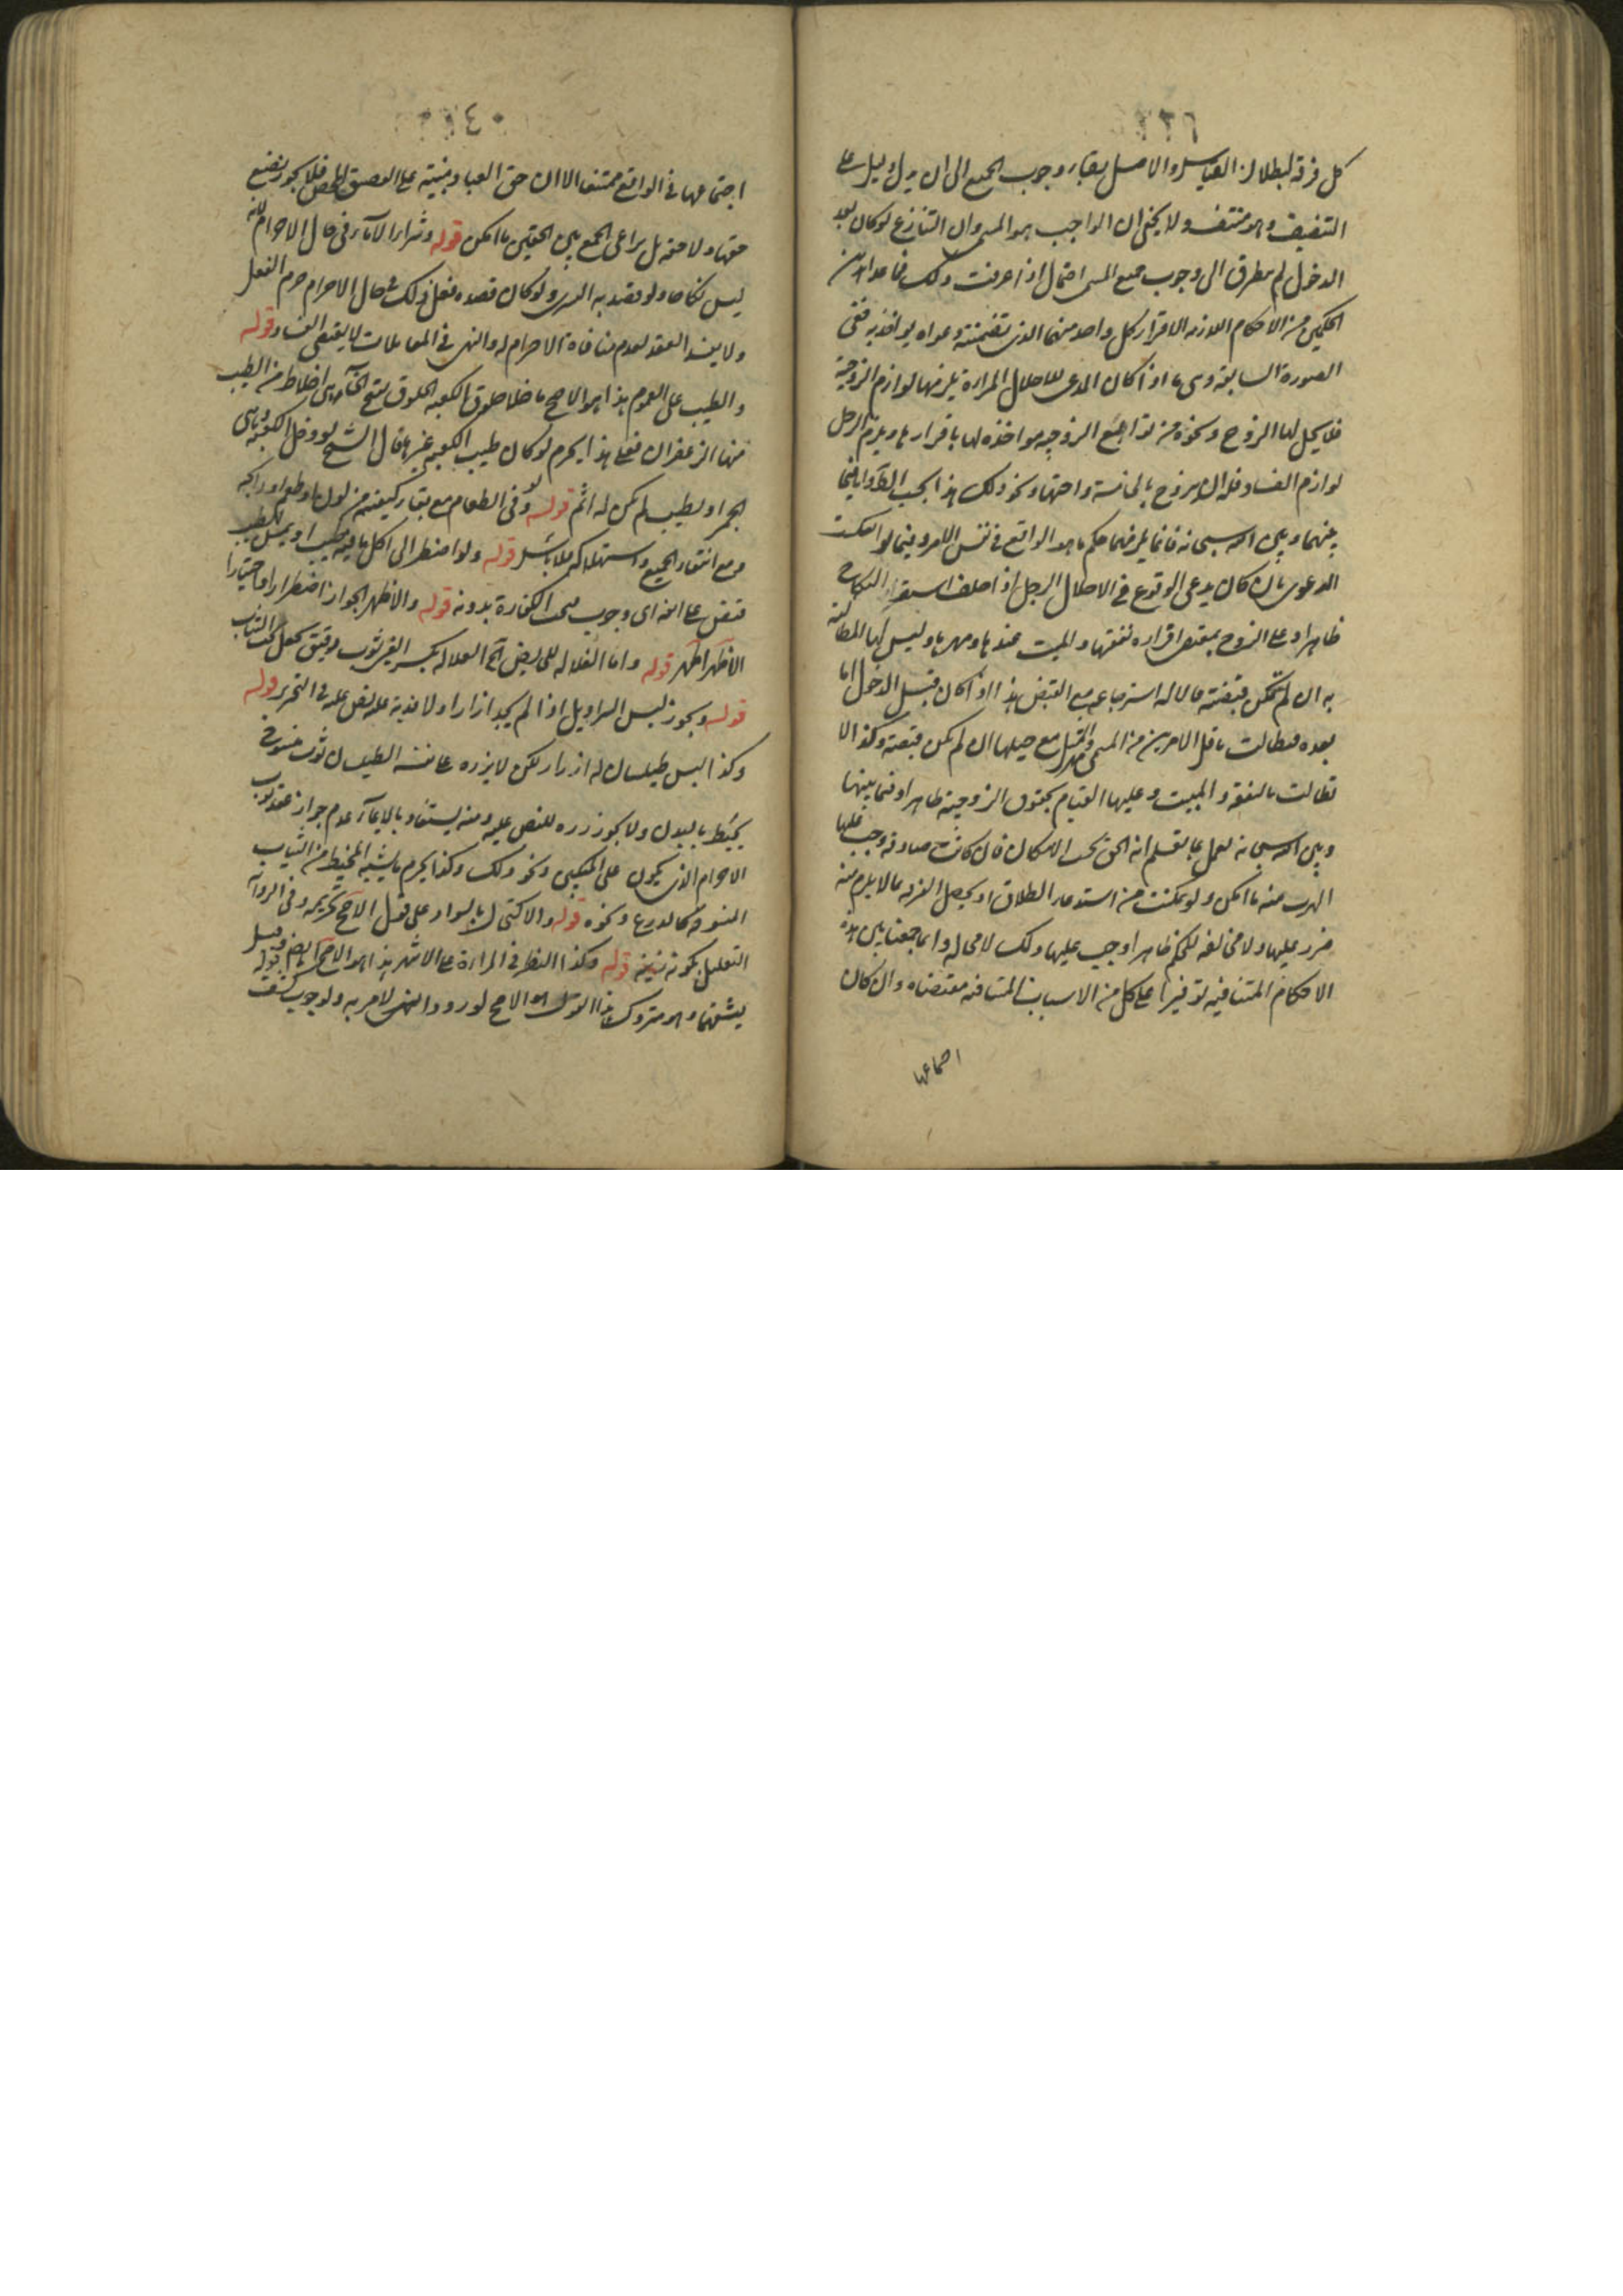 كل فرقة لبطلان القياس والاصل بقاء وجوب الجميع الى ان يدل دليل على
التنصيف وهو منتف ولا يخفى ان الواجب هو المسمى وان التنازع لو كان بعد
الدخول لم يتطرق الى وجوب جميع المسمى احتمال اذا عرفت ذلك فما عدا هذين
الحكمين من الاحكام اللازمة لاقرار كل واحد منهما الذى تضمنته دعواه يواخذ به ففى
الصورة السابقة وهى ما اذا كان المدعى للاحلال المراة يلزمها لوازم الزوجية
فلا يحل لها التزوج ونحوه من توابع الزوجية مواخذة لها باقرارها ويلزم الرجل
لوازم الفساد فله ان يتزوج بالخامسة واختها ونحو ذلك هذا بحسب الظاهر اما فيما
بينهما وبين الله سبحانه فانما يلزمهما حكم ما هو الواقع فى نفس الامر وفيما لو انعكست
الدعوى بان كان يدعى الوقوع فى الاحلال الرجل اذا حلف استقر النكاح
ظاهرا وعلى الزوج بمقتضى اقراره نفقتها والمبيت عندها ومهرها وليس لها المطالبة
به ان لم تكن قبضته ولا له استرجاعه مع القبض هذا اذا كان قبل الدخول اما
بعده فتطالب باقل الامرين من المسمى ومهر المثل مع جهلها ان لم تكن قبضته وكذا لا
تطالب بالنفقة والمبيت وعليها القيام بحقوق الزوجية ظاهرا وفيما بينها
وبين الله سبحانه تعمل بما تعلم انه الحق بحسب الامكان فان كانت صادقة وجب عليها
الهرب منه ما امكن ولو تمكنت من استدعاء الطلاق او تحصيل الفرقة بما لا يلزم منه
ضرر عليها ولا مخالفة للحكم ظاهرا وجب عليها ذلك لا محالة وانما جمعنا بين هذه
الاحكام المتنافية توفيرا على كل من الاسباب المتنافية مقتضاه وان كان
اجتماعها
٤٠
اجتماعها فى الواقع ممتنعا الا ان حق العباد مبنية على الضيق المحض فلا يجوز تضييع
حقها ولا حقه بل يراعى الجمع بين الحقين ما امكن قوله وشراء الاماء فى حال الاحرام لانه
ليس نكاحا ولو قصد به التسرى ولو كان قصده فعل ذلك فى حال الاحرام حرم الفعل
ولا يفسد العقد لعدم منافاة الاحرام له والنهى فى المعاملات لا يقتضى الفساد قوله
والطيب على العموم هذا هو الاصح ما خلا خلوق الكعبة الخلوق بفتح الخاء هى اخلاط من الطيب
منها الزعفران فعلى هذا يحرم لو كان طيب الكعبة غيرها قال الشيخ لو دخل الكعبة وهى
تجمر او تطيب لم يكن له الشم قوله ولو فى الطعام مع بقاء كيفيته من لون او طعم او رائحة
ومع انتفاء الجميع واستهلاكه فلا باس قوله ولو اضطر الى اكل ما فيه طيب او لمس الطيب
قبض على انفه اى وجوب تحت الكفارة بدونه قوله والاظهر الجواز اضطرارا واختيارا
الاظهر اظهر قوله واما الغلالة للحايض فجايز الغلالة بكسر الغين ثوب رقيق تجعل تحت الثياب
قوله ويجوز لبس السراويل اذا لم يجد ازارا ولا فدية عليه نص عليه فى التحرير قوله
وكذا لبس طيلسان له ازرار لكن لا يزره على نفسه الطيلسان ثوب منسوج
يحيط بالبدن ولا يجوز زره للنص عليه ومنه يستفاد بالايماء عدم جواز عقد ثوب
الاحرام الذى يكون على المنكبين ونحو ذلك وكذا يحرم ما يشبه المخيط من الثياب
المنسوجة كالدرع ونحوه قوله والاكتحال بالسواد على قول الاصح تحريمه وفى الرواية
التعليل بكونه زينة قوله وكذا النظر فى المراة على الاشهر هذا هو الاصح ايضا قوله وقيل
يشقهما وهو متروك هذا القول هو الاصح لورود النص الامر به ولوجوب كشف